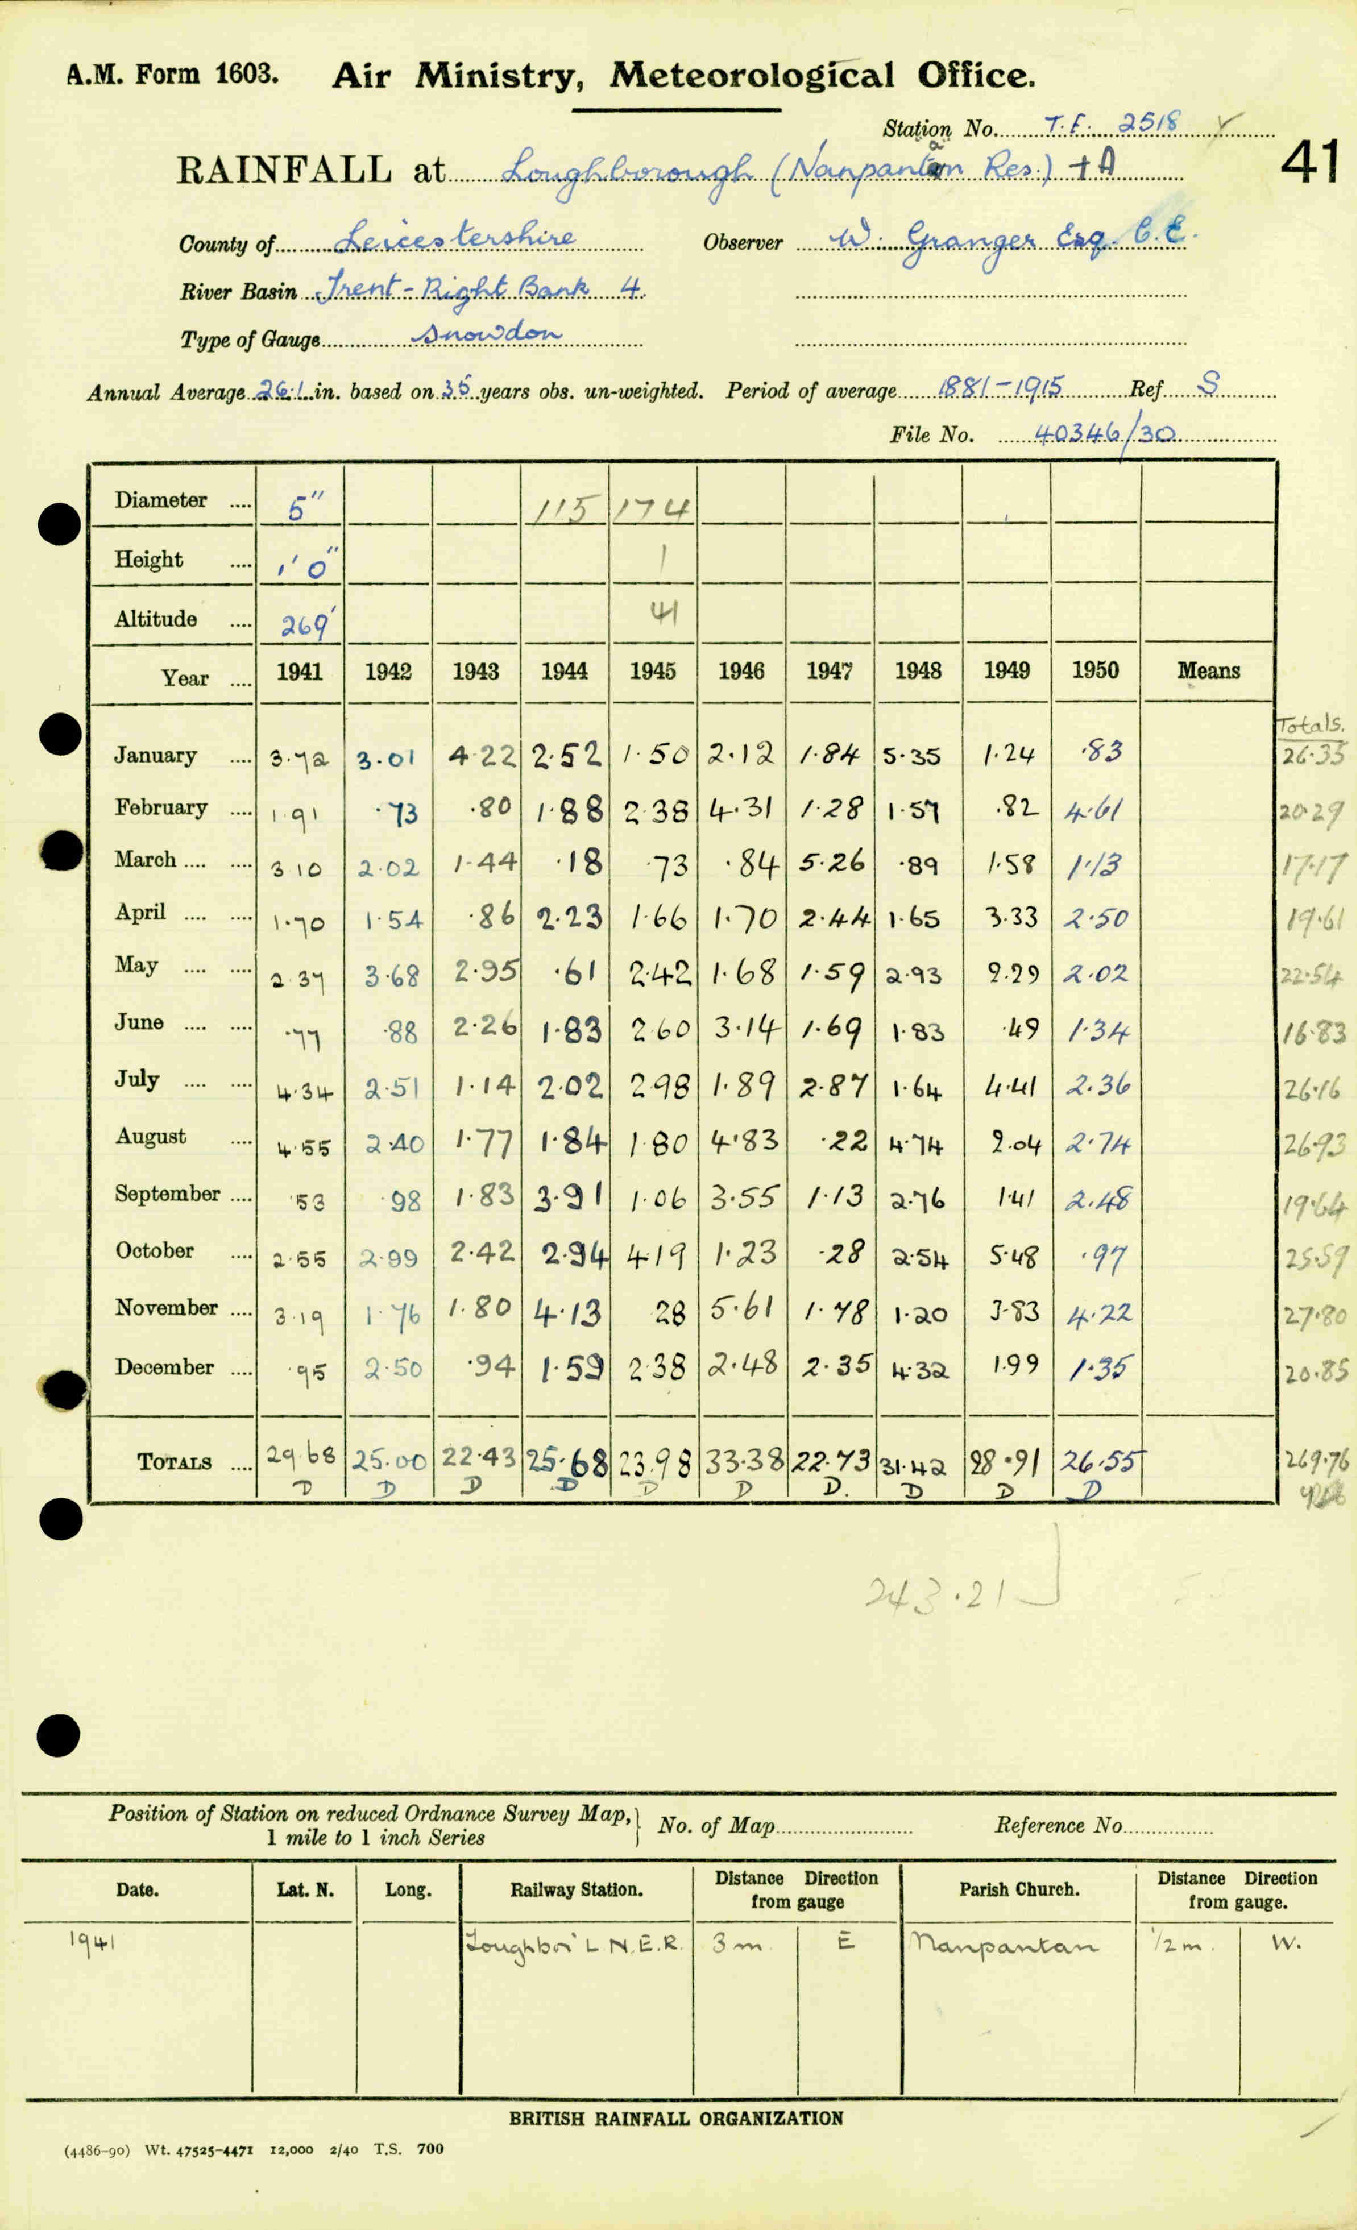 A.M. Form 1603. Air Ministry, Meteorological Office.
Station No. T.F. 2518
41
RAINFALL at Loughborough (Nanpantan Res.) + A
County of Leicestershire Observer W. Granger Esq. C.E.
River Basin Trent - Right Bank 4
Type of Gauge Snowdon
Annual Average 26.1 in. based on 35 years obs. un-weighted. Period of average 1881-1915 Ref S
File No. 40346/30
Diameter .... 5" 115 174
Height .... 1' 0" 1
Altitude .... 269' 41
Year .... 1941 1942 1943 1944 1945 1946 1947 1948 1949 1950 Means
Totals.
January .... 3.72 3.01 4.22 2.52 1.50 2.12 1.84 5.35 1.24 .83 26.35
February .... 1.91 .73 .80 1.88 2.38 4.31 1.28 1.57 .82 4.61 20.29
March .... .... 3.10 2.02 1.44 .18 .73 .84 5.26 .89 1.58 1.13 17.17
April .... .... 1.70 1.54 .86 2.23 1.66 1.70 2.44 1.65 3.33 2.50 19.61
May .... .... 2.37 3.68 2.95 .61 2.42 1.68 1.59 2.93 2.29 2.02 22.54
June .... .... .77 .88 2.26 1.83 2.60 3.14 1.69 1.83 .49 1.34 16.83
July .... .... 4.34 2.51 1.14 2.02 2.98 1.89 2.87 1.64 4.41 2.36 26.16
August .... 4.55 2.40 1.77 1.84 1.80 4.83 .22 4.74 2.04 2.74 26.93
September .... .53 .98 1.83 3.91 1.06 3.55 1.13 2.76 1.41 2.48 19.64
October .... 2.55 2.99 2.42 2.94 4.19 1.23 .28 2.54 5.48 .97 25.59
November .... 3.19 1.76 1.80 4.13 .28 5.61 1.78 1.20 3.83 4.22 27.80
December .... .95 2.50 .94 1.59 2.38 2.48 2.35 4.32 1.99 1.35 20.85
TOTALS .... 29.68 25.00 22.43 25.68 23.98 33.38 22.73 31.42 28.91 26.55 269.76
D D D D D D D. D D D
243.21
Position of Station on reduced Ordnance Survey Map, } No. of Map Reference No.
1 mile to 1 inch Series
Date. Lat. N. Long. Railway Station. Distance Direction from gauge Parish Church. Distance Direction from gauge.
1941 Loughboro' L.N.E.R. 3 m. E Nanpantan 1/2 m. W.
BRITISH RAINFALL ORGANIZATION
(4486-90) Wt. 47525-4471 12,000 2/40 T.S. 700